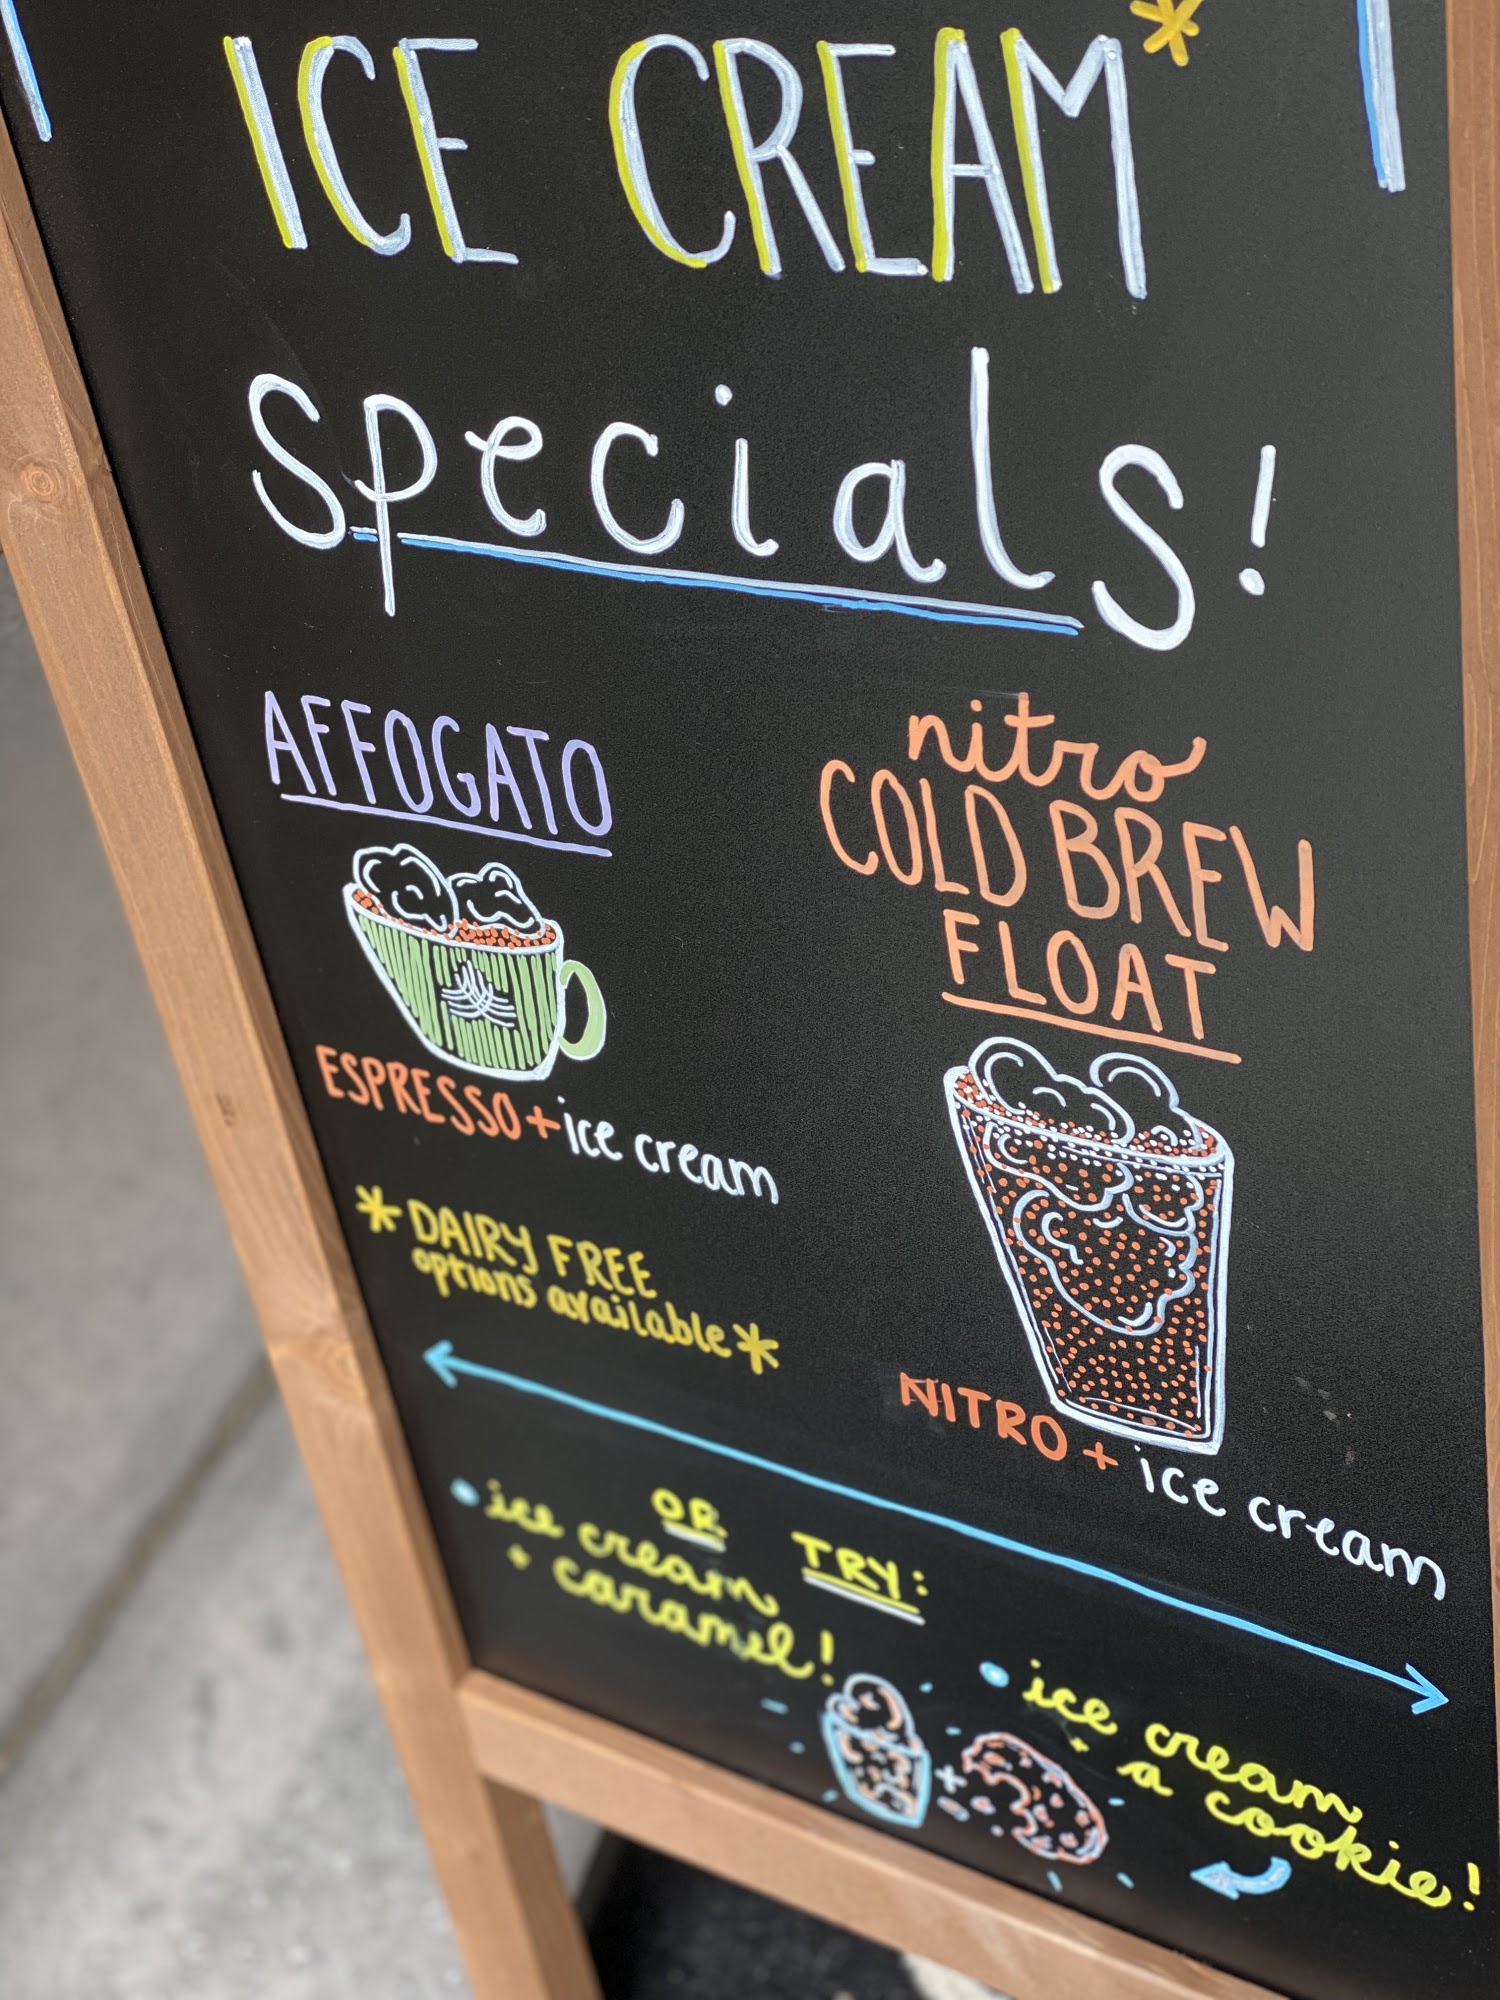 ICE CREAM*
specials!
AFFOGATO
ESPRESSO + ice cream
*DAIRY FREE
options available*
nitro
COLD BREW
FLOAT
NITRO + ice cream
OR TRY:
• ice cream
+ caramel!
• ice cream
+ a cookie!